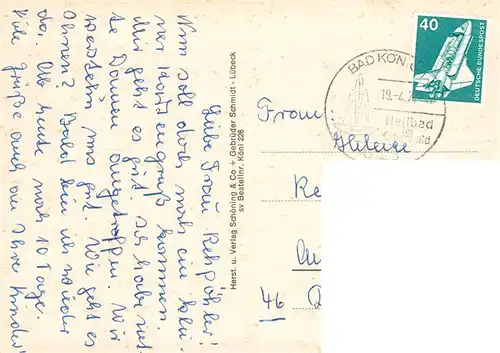 Liebe Frau Rehpöhler!
Nun soll doch noch ein klei-
ner kommen.
Mir geht es gut. Ich habe net-
te Damen angetroffen. Wir
verstehn uns gut. Wie geht es
Ihnen? Bald bin ich wieder
da. Ab heute noch 10 Tage.
Viele Grüße auch an Ihre Kinder
Herst. u. Verlag Schöning & Co + Gebrüder Schmidt - Lübeck
sv Bestellnr. Köni 226
40
DEUTSCHE BUNDESPOST
BAD KÖNIG
19.-4.
Heilbad
Frau
46